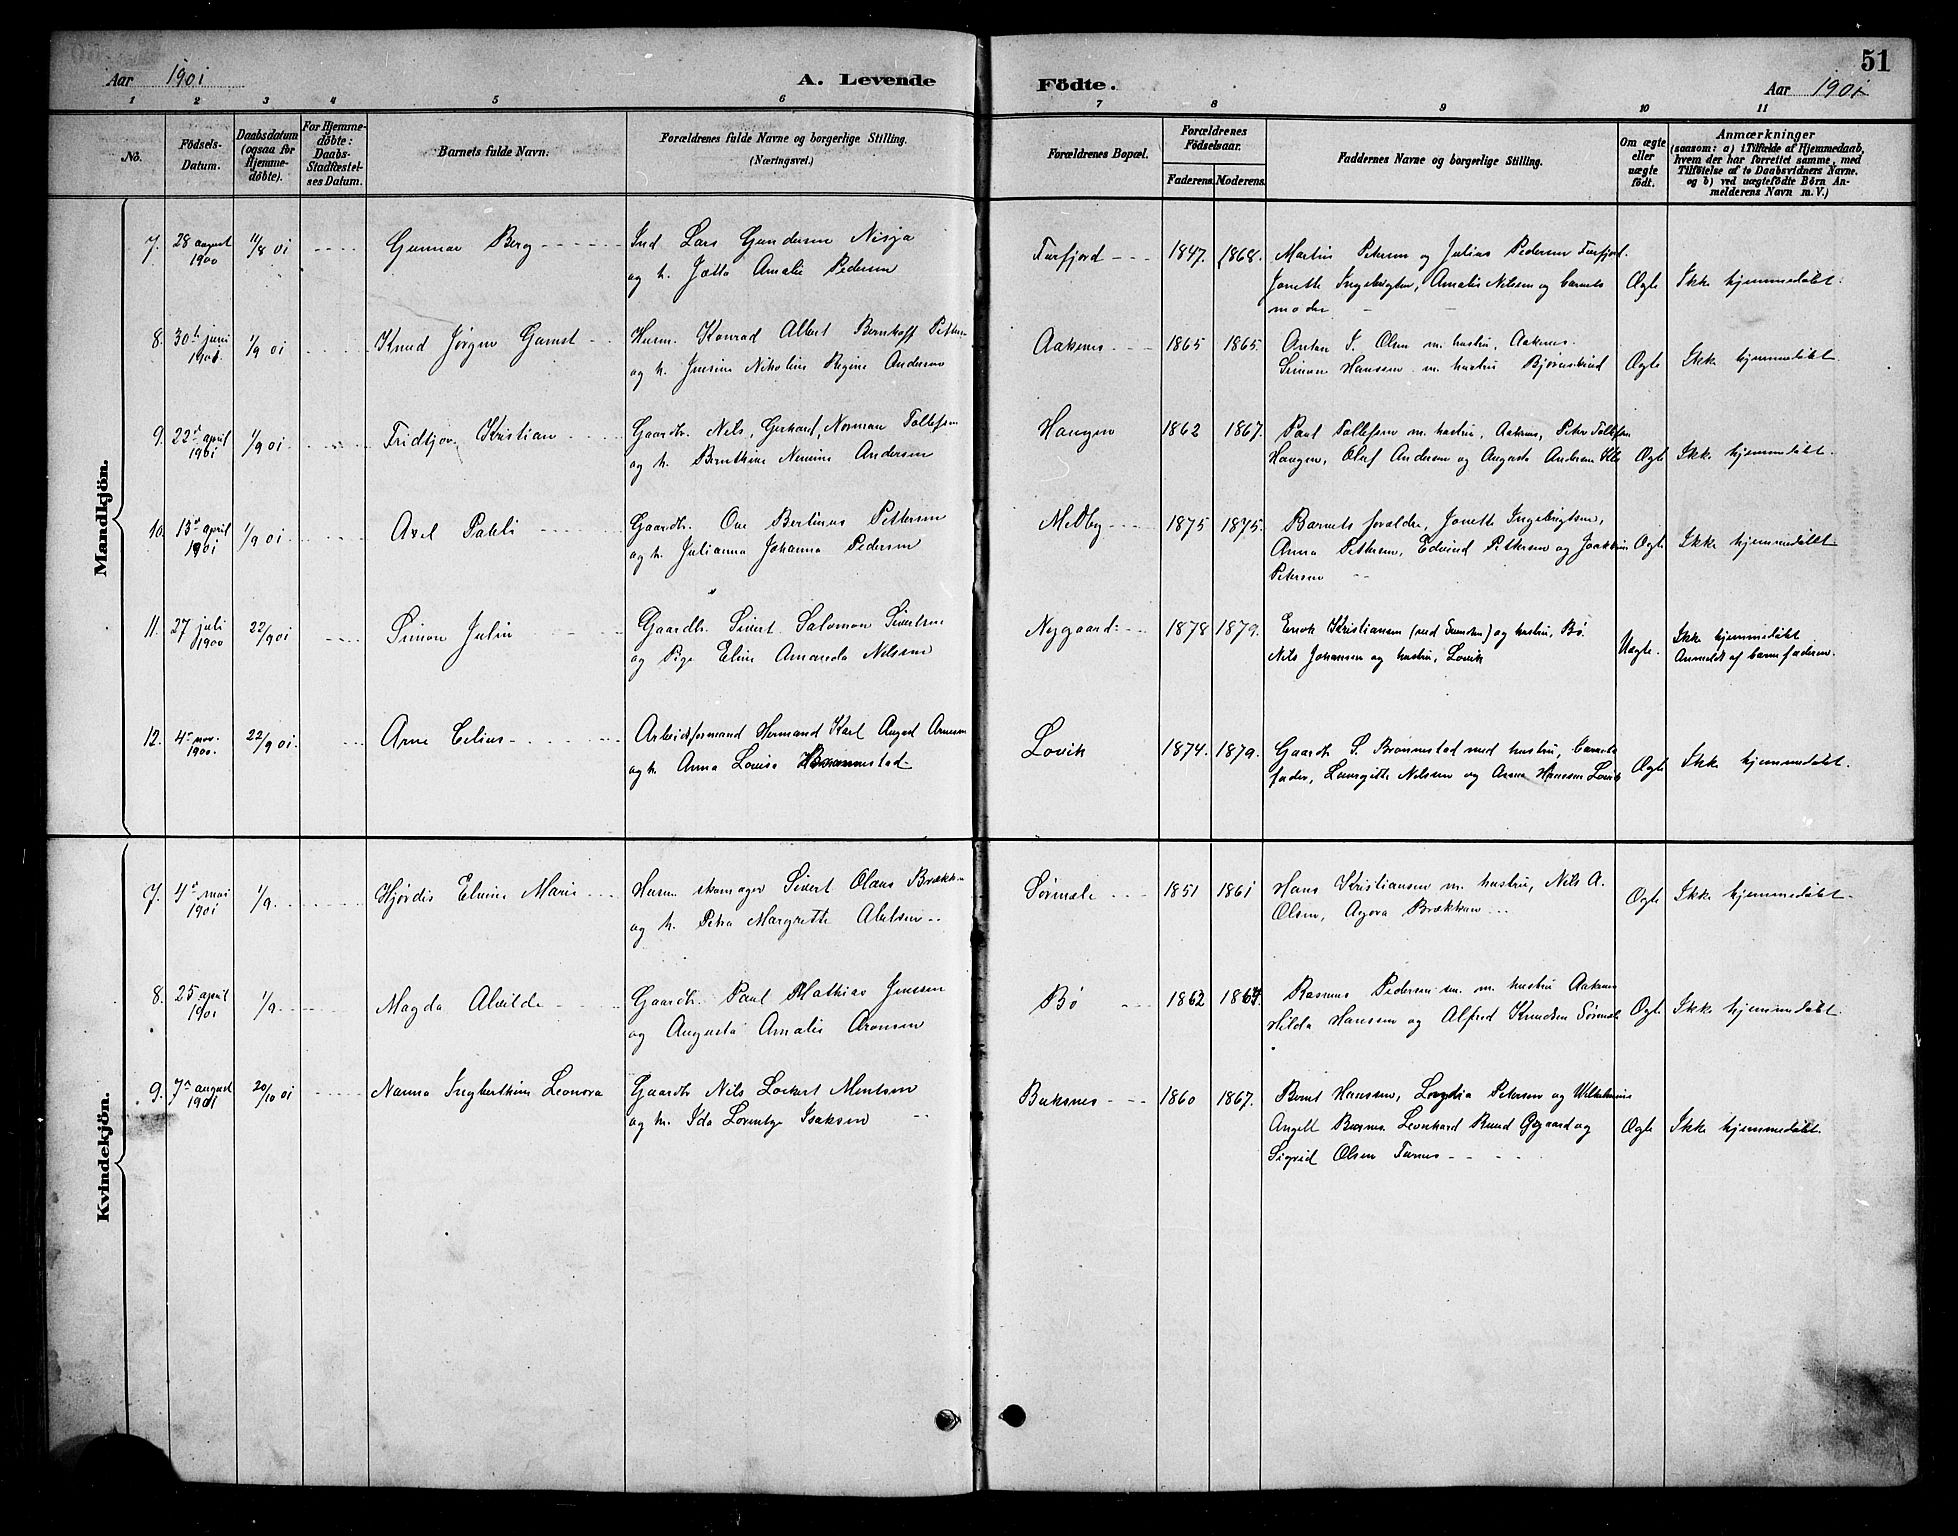 51
Aar 1901
A. Levende Födte.
Aar 1901
1 2 3 4 5 6 7 8 9 10 11
No.
Födsels-
Datum.
Daabsdatum
(ogsaa for
Hjemme-
döbte).
For Hjemme-
döbte:
Daabs-
Stadfæstel-
ses Datum.
Barnets fulde Navn.
Forældrenes fulde Navne og borgerlige Stilling.
(Næringsvei.)
Forældrenes Bopæl.
Forældrenes
Födselsaar.
Faderens. Moderens.
Faddernes Navne og borgerlige Stilling.
Om ægte
eller
uægte
födt.
Anmærkninger
(saasom: a) i Tilfælde af Hjemmedaab,
hvem der har forrettet samme, med
Tilföielse af to Daabsvidners Navne.
og b) ved uægtefödte Börn An-
melderens Navn m. V.)
Mandkjön.
7. 28 august 1900
11/8 01
Gunnar Berg
Ind. Lars Gundersen Nisja
og h. Jætta Amalie Pedersen
Furfjord
1847. 1868.
Martin Petersen og Julius Pedersen Furfjord.
Jonette Ingebrigtsen, Amalie Nilsen og barnets
moder
Ægte
Ikke hjemmedøbt.
8. 30te juni 1901
1/9 01
Knud Jørgen Gamst
Husm. Konrad Albert Bernhoff Petters
og h. Jensine Nikoline Regine Andersen
Aaknes
1865 1865.
Anton S. Olsen m. hustru, Aaknes.
Simon Hanssen m. hustru
Ægte
Ikke hjemmedøbt
9. 22de april 1901
1/9 01
Fridtjov Kristian
Gaardbr. Nils, Gerhard, Norman Tollefsen
og h. Bernthine Andersen
Haugen
1862 1867.
Paul Tollefsen m. hustru, Aaknes, Peter Tollefsen
Haugen, Oluf Andersen og Augusta Andersen
Ægte
Ikke hjemmedøbt.
10. 13de april 1901
1/9 01
Axel
Gaardbr. Ove Berlinus Pettersen
og h. Julianna Johanna Pedersen
Medby
1875 1875.
Barnets forældre, Jonette Ingebrigtsen,
Anna Pettersen, Edvind Pettersen og
Petersen
Ægte
Ikke hjemmedøbt
11. 27 juli 1900
22/9 01
Simon Julin
Gaardbr. Sivert Salomon Sivertsen
og Pige Eline Amanda Nilssen
Nygaard
1878 1879.
Enok Kristiansen og hustru, Bø.
Nils Johansen og hustru, Lovik
Uægte.
Ikke hjemmedøbt
Anmeldt af barnefaderen.
12. 4de nov. 1900.
22/9 01.
Arne Celius
Arbeidsformand Hermand Karl August Arnesen
og h. Anna Lovise Brønnestad
Lovik
1874. 1879.
Gaardb S. Brønnestad med hustru, barnets
fader, Nilssen og Anna Hanssen Lovik
Ægte
Ikke hjemmedøbt.
Kvindekjön.
7. 4de mai 1901
1/9.
Hjørdis Elvine Marie
Husm. skomager Sivert Olaus Brækk
og h. Petra Margrethe Abelsen
Sørmæle
1851 1861
Hans Kristiansen m. hustru, Nils A.
Olsen, Agora Brækkan
Ægte
Ikke hjemmedøbt.
8. 25 april 1901
1/9.
Magda Alvilde
Gaardbr. Paul Mathias Jensen
og Augusta Amalie Aronsen
Bø
1862 1864.
Rasmus Pedersen m. hustru Aaknes
Hilda Hanssen og Alfred Knudsen Sørmæle
Ægte
Ikke hjemmedøbt.
9. 7de august 1901
20/10 01
Nanna Ingberthine Leonora
Gaardbr Nils Lockert Mentsen
og h. Ida Lorentze Isaksen
Buksnes
1860 1867.
Bernt Hanssen, Petersen og Wilhelmine
Angell Leonhard og
Sigrid Olsen
Ægte
Ikke hjemmedøbt.